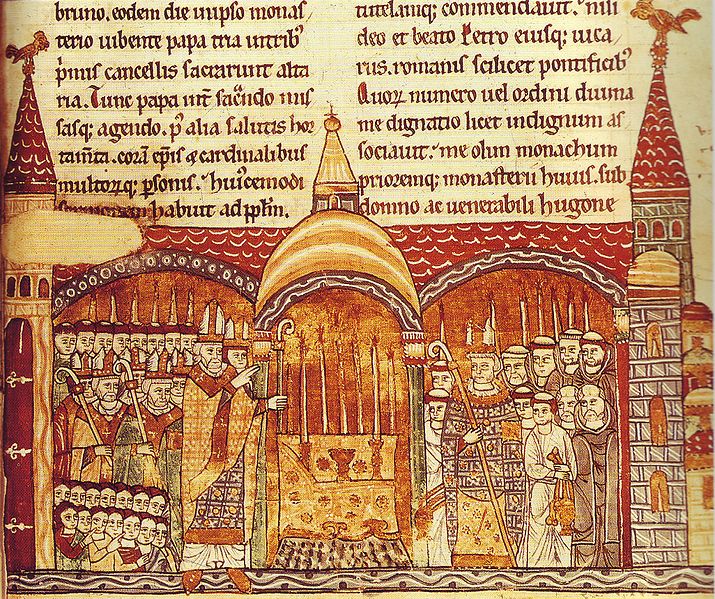 bruno. eodem die in ipso monas
terio iubente papa tria uitribꝰ
p̄mis cancellis sacrarunt alta
ria. Tunc papa int̄ sac̄ndo mis
sasq; agendo. ꝑ alia salutis hor
tam̄ta. corā ep̄is & cardinalibus
multorꝫq; ꝑsonis. huiꝰcemodi
habuit ad pp̄lm.
tutelamq; commendauit. nisi
deo et beato Petro eiusq; uica
riis. romanis scilicet pontificibꝰ
Quorꝫ numero uel ordini diuina
me dignatio licet indignum as
sociauit. me olim monachum
prioremq; monasterii huius. sub
domno ac uenerabili hugone